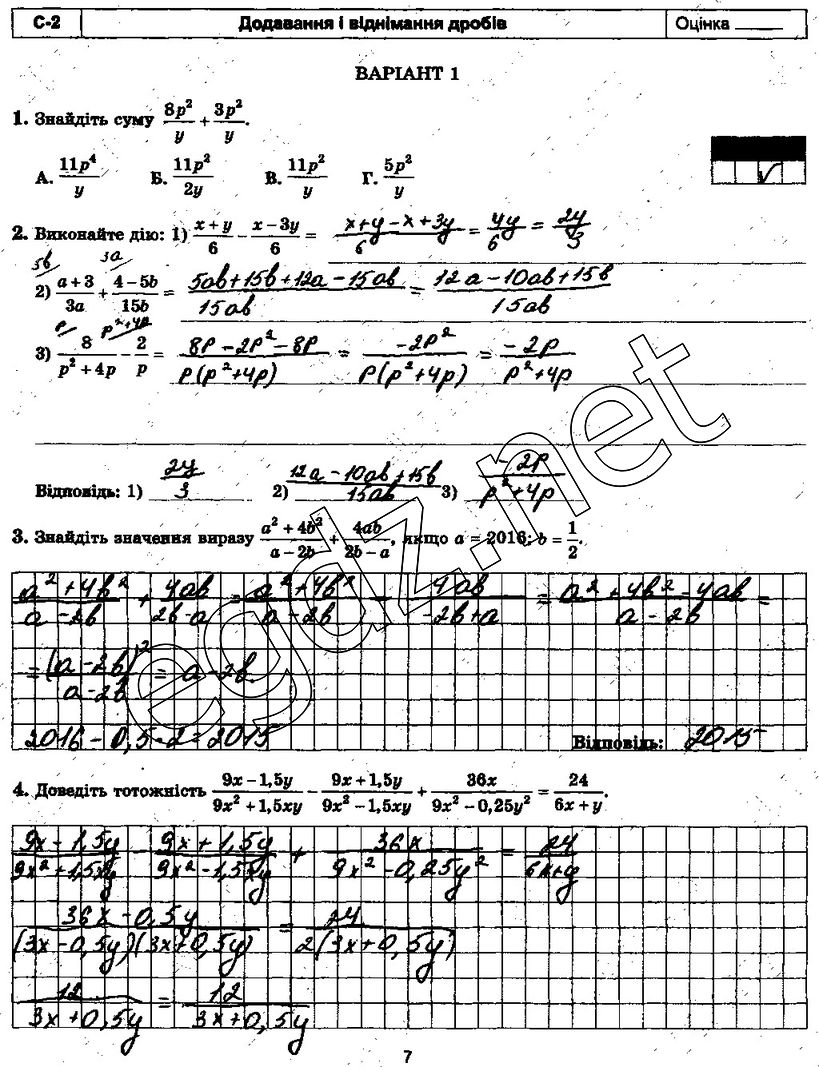 С-2 Додавання і віднімання дробів Оцінка ______
ВАРІАНТ 1
1. Знайдіть суму 8p²/y + 3p²/y.
А. 11p⁴/y Б. 11p²/2y В. 11p²/y Г. 5p²/y
2. Виконайте дію: 1) (x + y)/6 − (x − 3y)/6 = (x+y−x+3y)/6 = 4y/6 = 2y/3
5b 3a
2) (a + 3)/3a + (4 − 5b)/15b = (5ab+15b+12a−15ab)/15ab = (12a−10ab+15b)/15ab
p p²+4p
3) 8/(p² + 4p) − 2/p = (8p−2p²−8p)/(p(p²+4p)) = −2p²/(p(p²+4p)) = −2p/(p²+4p)
Відповідь: 1) 2y/3 2) (12a−10ab+15b)/15ab 3) −2p/(p²+4p)
3. Знайдіть значення виразу (a² + 4b²)/(a − 2b) + 4ab/(2b − a), якщо a = 2016; b = 1/2.
(a²+4b²)/(a−2b) + 4ab/(2b−a) = (a²+4b²)/(a−2b) − 4ab/(−2b+a) = (a²+4b²−4ab)/(a−2b) =
= (a−2b)²/(a−2b) = a−2b.
2016−0,5·2=2015 Відповідь: 2015
4. Доведіть тотожність (9x − 1,5y)/(9x² + 1,5xy) − (9x + 1,5y)/(9x² − 1,5xy) + 36x/(9x² − 0,25y²) = 24/(6x + y).
(9x−1,5y)/(9x²+1,5xy) − (9x+1,5y)/(9x²−1,5xy) + 36x/(9x²−0,25y²) = 24/(6x+y)
(36x−0,5y)/((3x−0,5y)(3x+0,5y)) = 24/(2(3x+0,5y))
12/(3x+0,5y) = 12/(3x+0,5y)
7
egdz.net